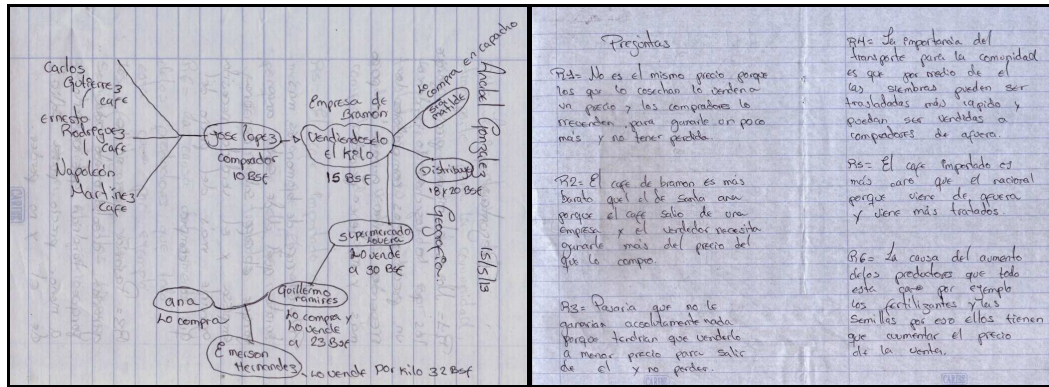 Carlos
Gutierrez
cafe
ernesto
Rodriguez
cafe
Napoleón
Martinez
Cafe
Jose lopez
comprador
10 BsF
Empresa de
Bramon
Vendiendoselo
el Kilo
15 BsF
Lo compra en capacho
Sra
matilde
Distribuye
18 y 20 BsF
Supermercado
Lovera
Lo vende
a 30 BsF
Guillermo
ramires
Lo compra y
Lo vende
a 23 BsF
ana
Lo compra
Emerson
Hernandez
Lo vende por kilo 32 BsF
Anabel Gonzalez
Geografia.
15/5/13
Preguntas
R1= No es el mismo precio porque
los que lo cosechan lo venden a
un precio y los compradores lo
revenden para ganarle un poco
más y no tener perdida.
R2= El cafe de bramon es más
barato que el de santa ana
porque el cafe salio de una
empresa y el vendedor necesita
ganarle más del precio del
que lo compro.
R3= Pasaria que no le
ganarian absolutamente nada
porque tendrian que venderlo
a menor precio para salir
de el y no perder.
R4= La importancia del
transporte para la comunidad
es que por medio de el
las siembras pueden ser
trasladadas más rapido y
puedan ser vendidas a
compradores de afuera.
R5= El cafe importado es
más caro que el nacional
porque viene de afuera
y viene más tratados.
R6= La causa del aumento
delos productores que todo
esta caro por ejemplo
los fertilizantes y las
Semillas por eso ellos tienen
que aumentar el precio
de la venta.